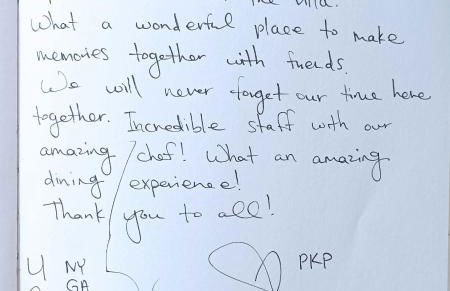 the villa.
What a wonderful place to make
memories together with friends.
We will never forget our time here
together. Incredible staff with our
amazing chef! What an amazing
dining experience!
Thank you to all!
PKP
NY
GA